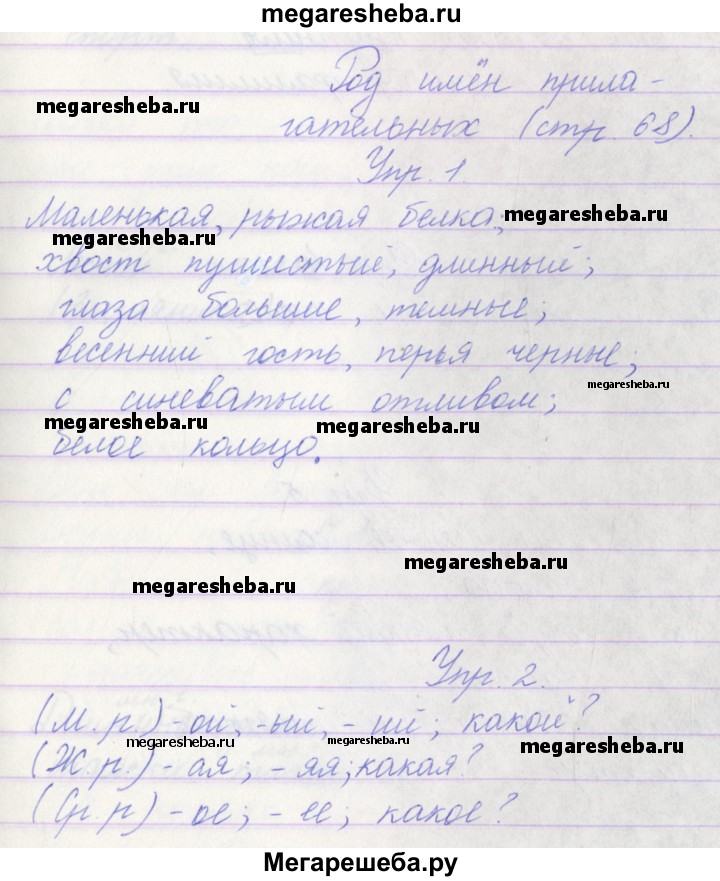 megaresheba.ru
Род имён прила-
megaresheba.ru
гательных (стр. 68).
Упр. 1.
Маленькая, рыжая белка;
megaresheba.ru
megaresheba.ru
хвост пушистый, длинный;
глаза большие, темные;
весенний гость, перья черные;
megaresheba.ru
с синеватым отливом;
megaresheba.ru
megaresheba.ru
белое кольцо.
megaresheba.ru
megaresheba.ru
Упр. 2.
(М. р.) - ой; -ый, - ий; какой?
megaresheba.ru
megaresheba.ru
megaresheba.ru
(Ж. р.) - ая; - яя; какая?
(Ср. р.) - ое; - ее; какое?
Мегарешеба.ру